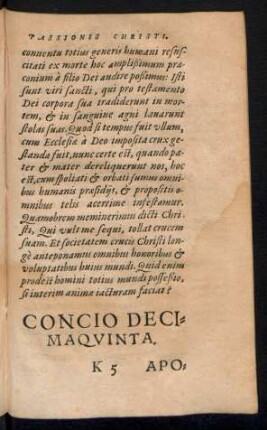 PASSIONIS CHRISTI.
conuentu totius generis humani resusci-
citati ex morte hoc amplißimum præ-
conium à filio Dei audire poßimus: Isti
sunt viri sancti, qui pro testamento
Dei corpora sua tradiderunt in mor-
tem, & in sanguine agni lauarunt
stolas suas. Quod si tempus fuit vllum,
cum Ecclesiæ à Deo imposita crux ge-
standa fuit, nunc certe est, quando pa-
ter & mater dereliquerunt nos, hoc
est, cum spoliati & orbati sumus omni-
bus humanis præsidijs, & propositi o-
mnibus telis acerrime infestamur.
Quamobrem meminerimus dicti Chri-
sti, Qui vult me sequi, tollat crucem
suam. Et societatem crucis Christi lon-
gè anteponamus omnibus honoribus &
voluptatibus huius mundi. Quid enim
prodest homini totius mundi possessio,
si interim animæ iacturam faciat?
CONCIO DECI-
MAQVINTA.
K 5 APO-